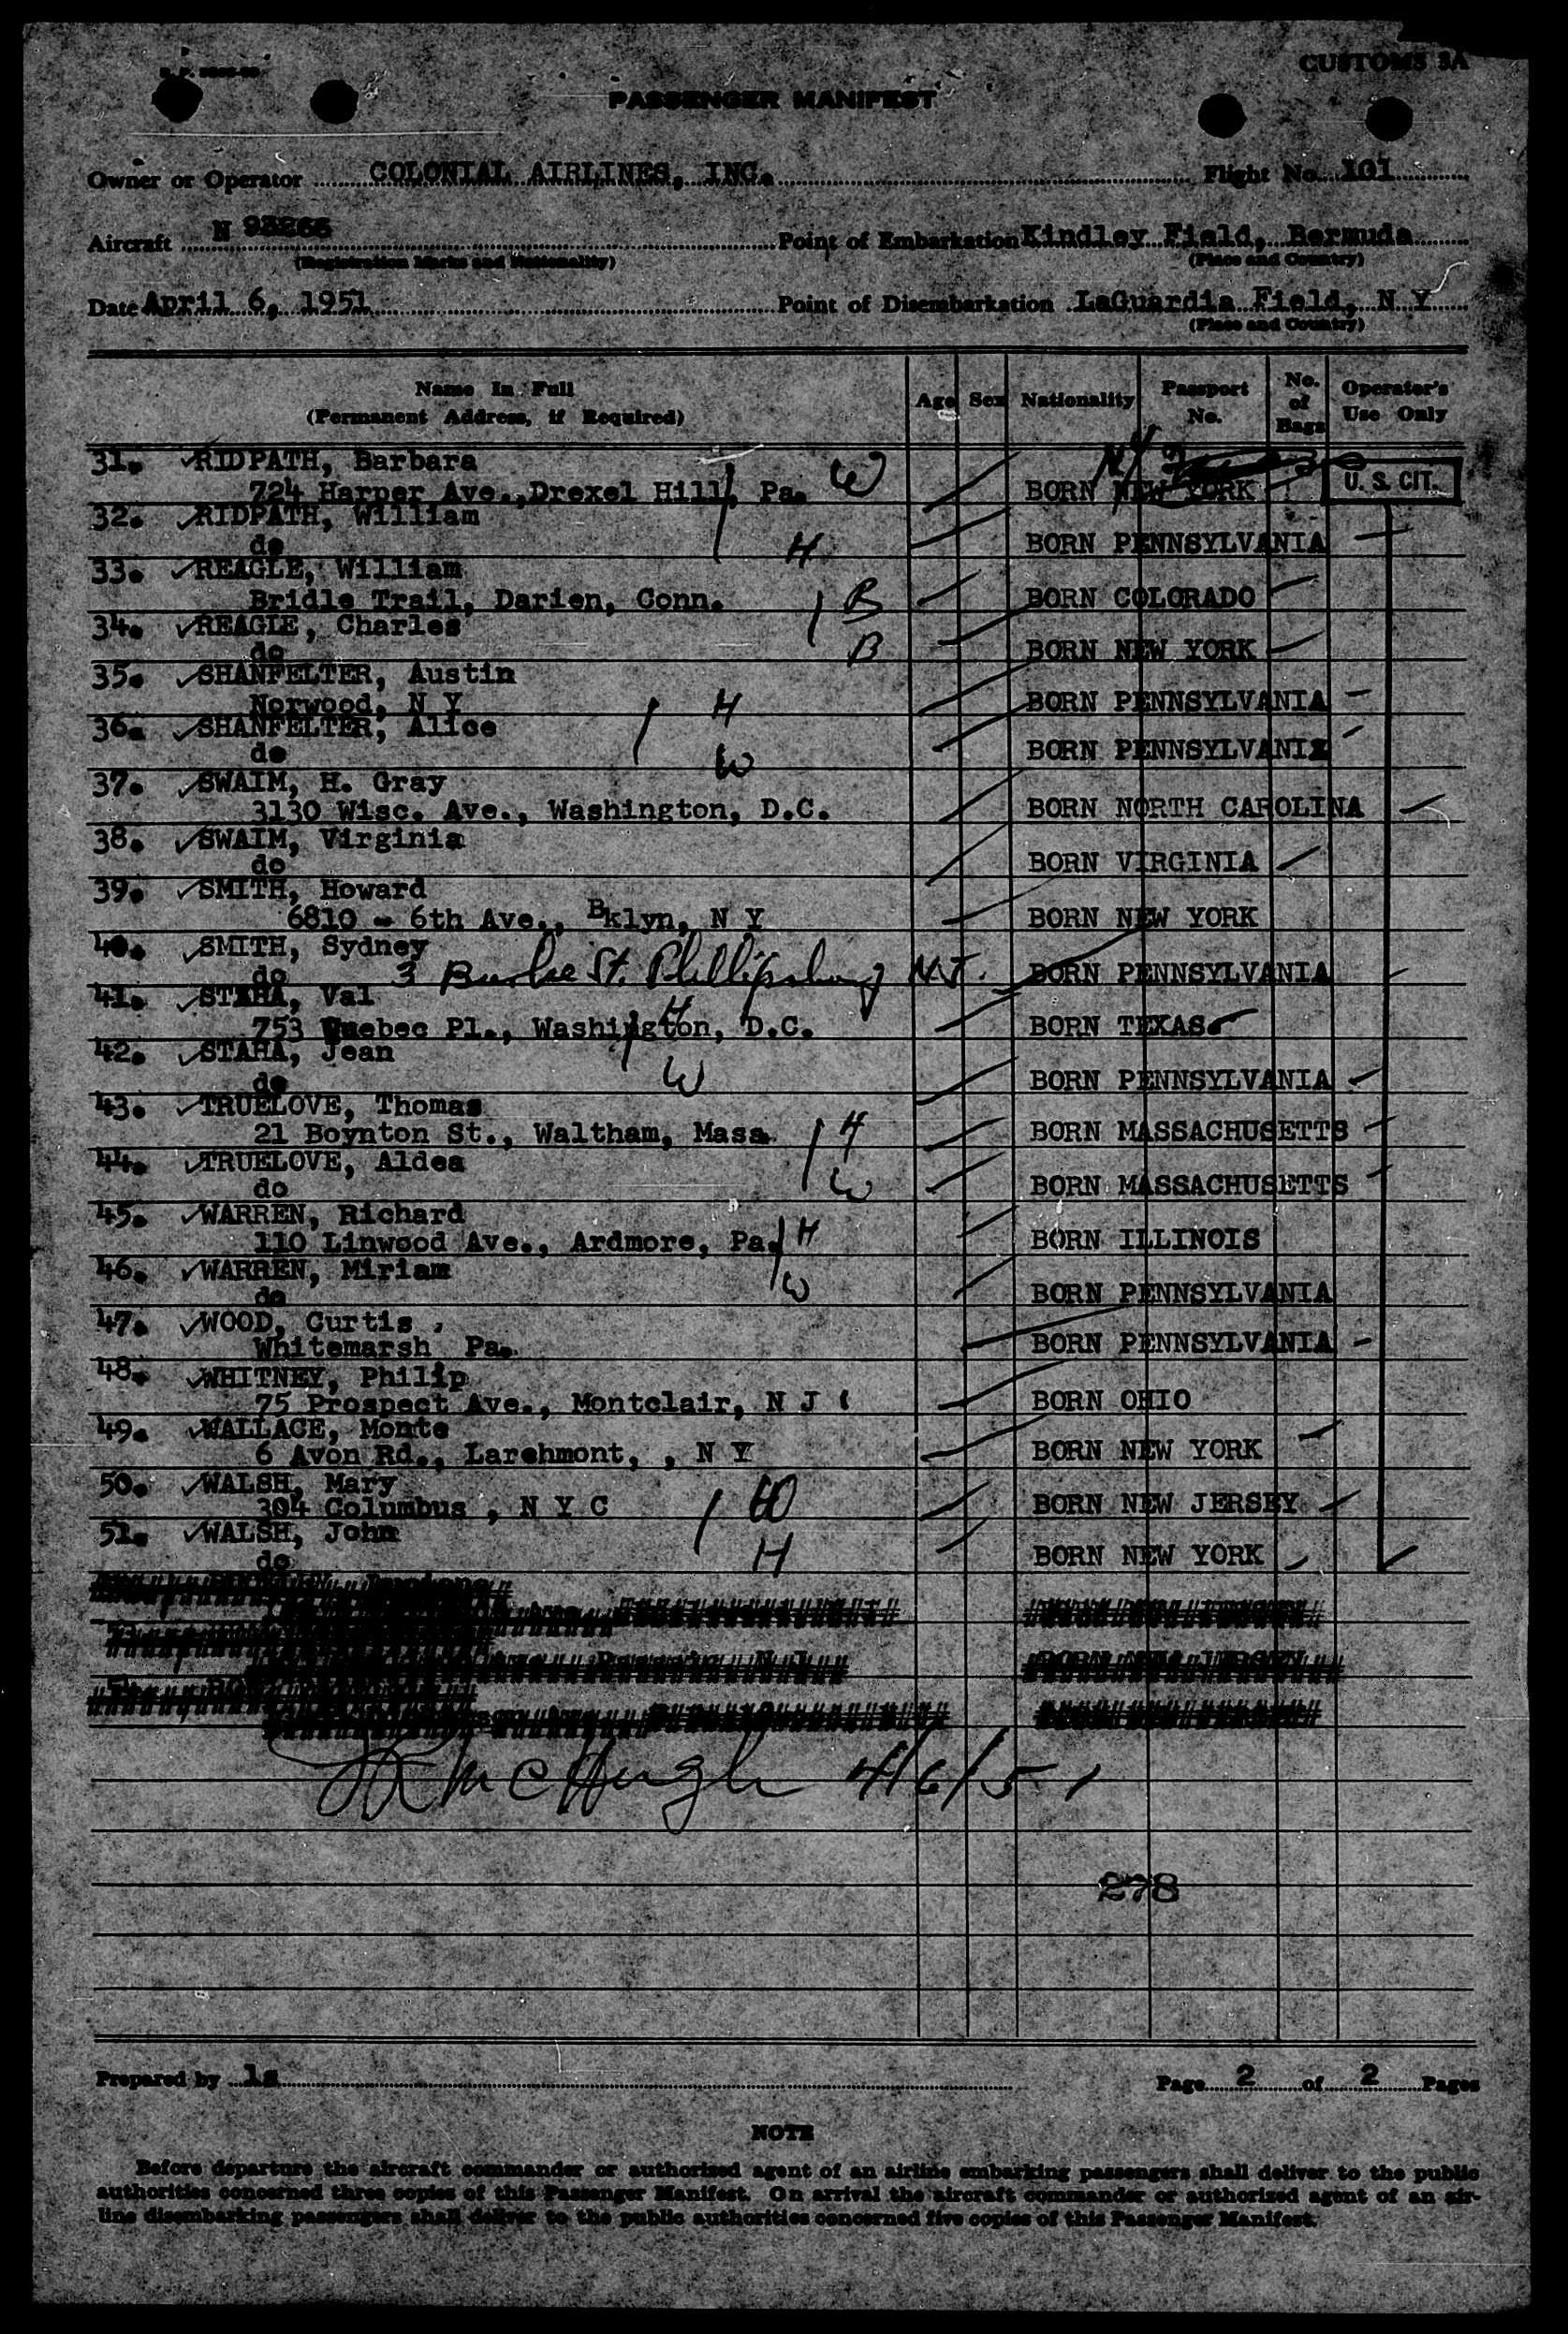 CUSTOMS 3A
PASSENGER MANIFEST
Owner or Operator COLONIAL AIRLINES, INC. Flight No. 101
Aircraft N 93266 Point of Embarkation Kindley Field, Bermuda
(Registration Marks and Nationality) (Place and Country)
Date April 6, 1951 Point of Disembarkation LaGuardia Field, N Y
(Place and Country)
Name In Full (Permanent Address, if Required) Age Sex Nationality Passport No. No. of Bags Operator's Use Only
31. RIDPATH, Barbara
724 Harper Ave., Drexel Hill, Pa. W BORN NEW YORK U. S. CIT.
32. RIDPATH, William
do H BORN PENNSYLVANIA
33. REAGLE, William
Bridle Trail, Darien, Conn. B BORN COLORADO
34. REAGLE, Charles
do B BORN NEW YORK
35. SHANFELTER, Austin
Norwood, N Y H BORN PENNSYLVANIA
36. SHANFELTER, Alice
do W BORN PENNSYLVANIA
37. SWAIM, H. Gray
3130 Wisc. Ave., Washington, D.C. BORN NORTH CAROLINA
38. SWAIM, Virginia
do BORN VIRGINIA
39. SMITH, Howard
6810 - 6th Ave., Bklyn, N Y BORN NEW YORK
40. SMITH, Sydney
do 3 St. Phillipsburg N.J. BORN PENNSYLVANIA
41. STAHA, Val
753 Quebec Pl., Washington, D.C. H BORN TEXAS
42. STAHA, Jean
do W BORN PENNSYLVANIA
43. TRUELOVE, Thomas
21 Boynton St., Waltham, Mass. H BORN MASSACHUSETTS
44. TRUELOVE, Aldea
do W BORN MASSACHUSETTS
45. WARREN, Richard
110 Linwood Ave., Ardmore, Pa. H BORN ILLINOIS
46. WARREN, Miriam
do W BORN PENNSYLVANIA
47. WOOD, Curtis
Whitemarsh Pa. BORN PENNSYLVANIA
48. WHITNEY, Philip
75 Prospect Ave., Montclair, N J BORN OHIO
49. WALLACE, Monte
6 Avon Rd., Larchmont, , N Y BORN NEW YORK
50. WALSH, Mary
304 Columbus , N Y C W BORN NEW JERSEY
51. WALSH, John
do H BORN NEW YORK
McHugh 4/6/51
278
Prepared by ls Page 2 of 2 Pages
NOTE
Before departure the aircraft commander or authorized agent of an airline embarking passengers shall deliver to the public
authorities concerned three copies of this Passenger Manifest. On arrival the aircraft commander or authorized agent of an air-
line disembarking passengers shall deliver to the public authorities concerned five copies of this Passenger Manifest.